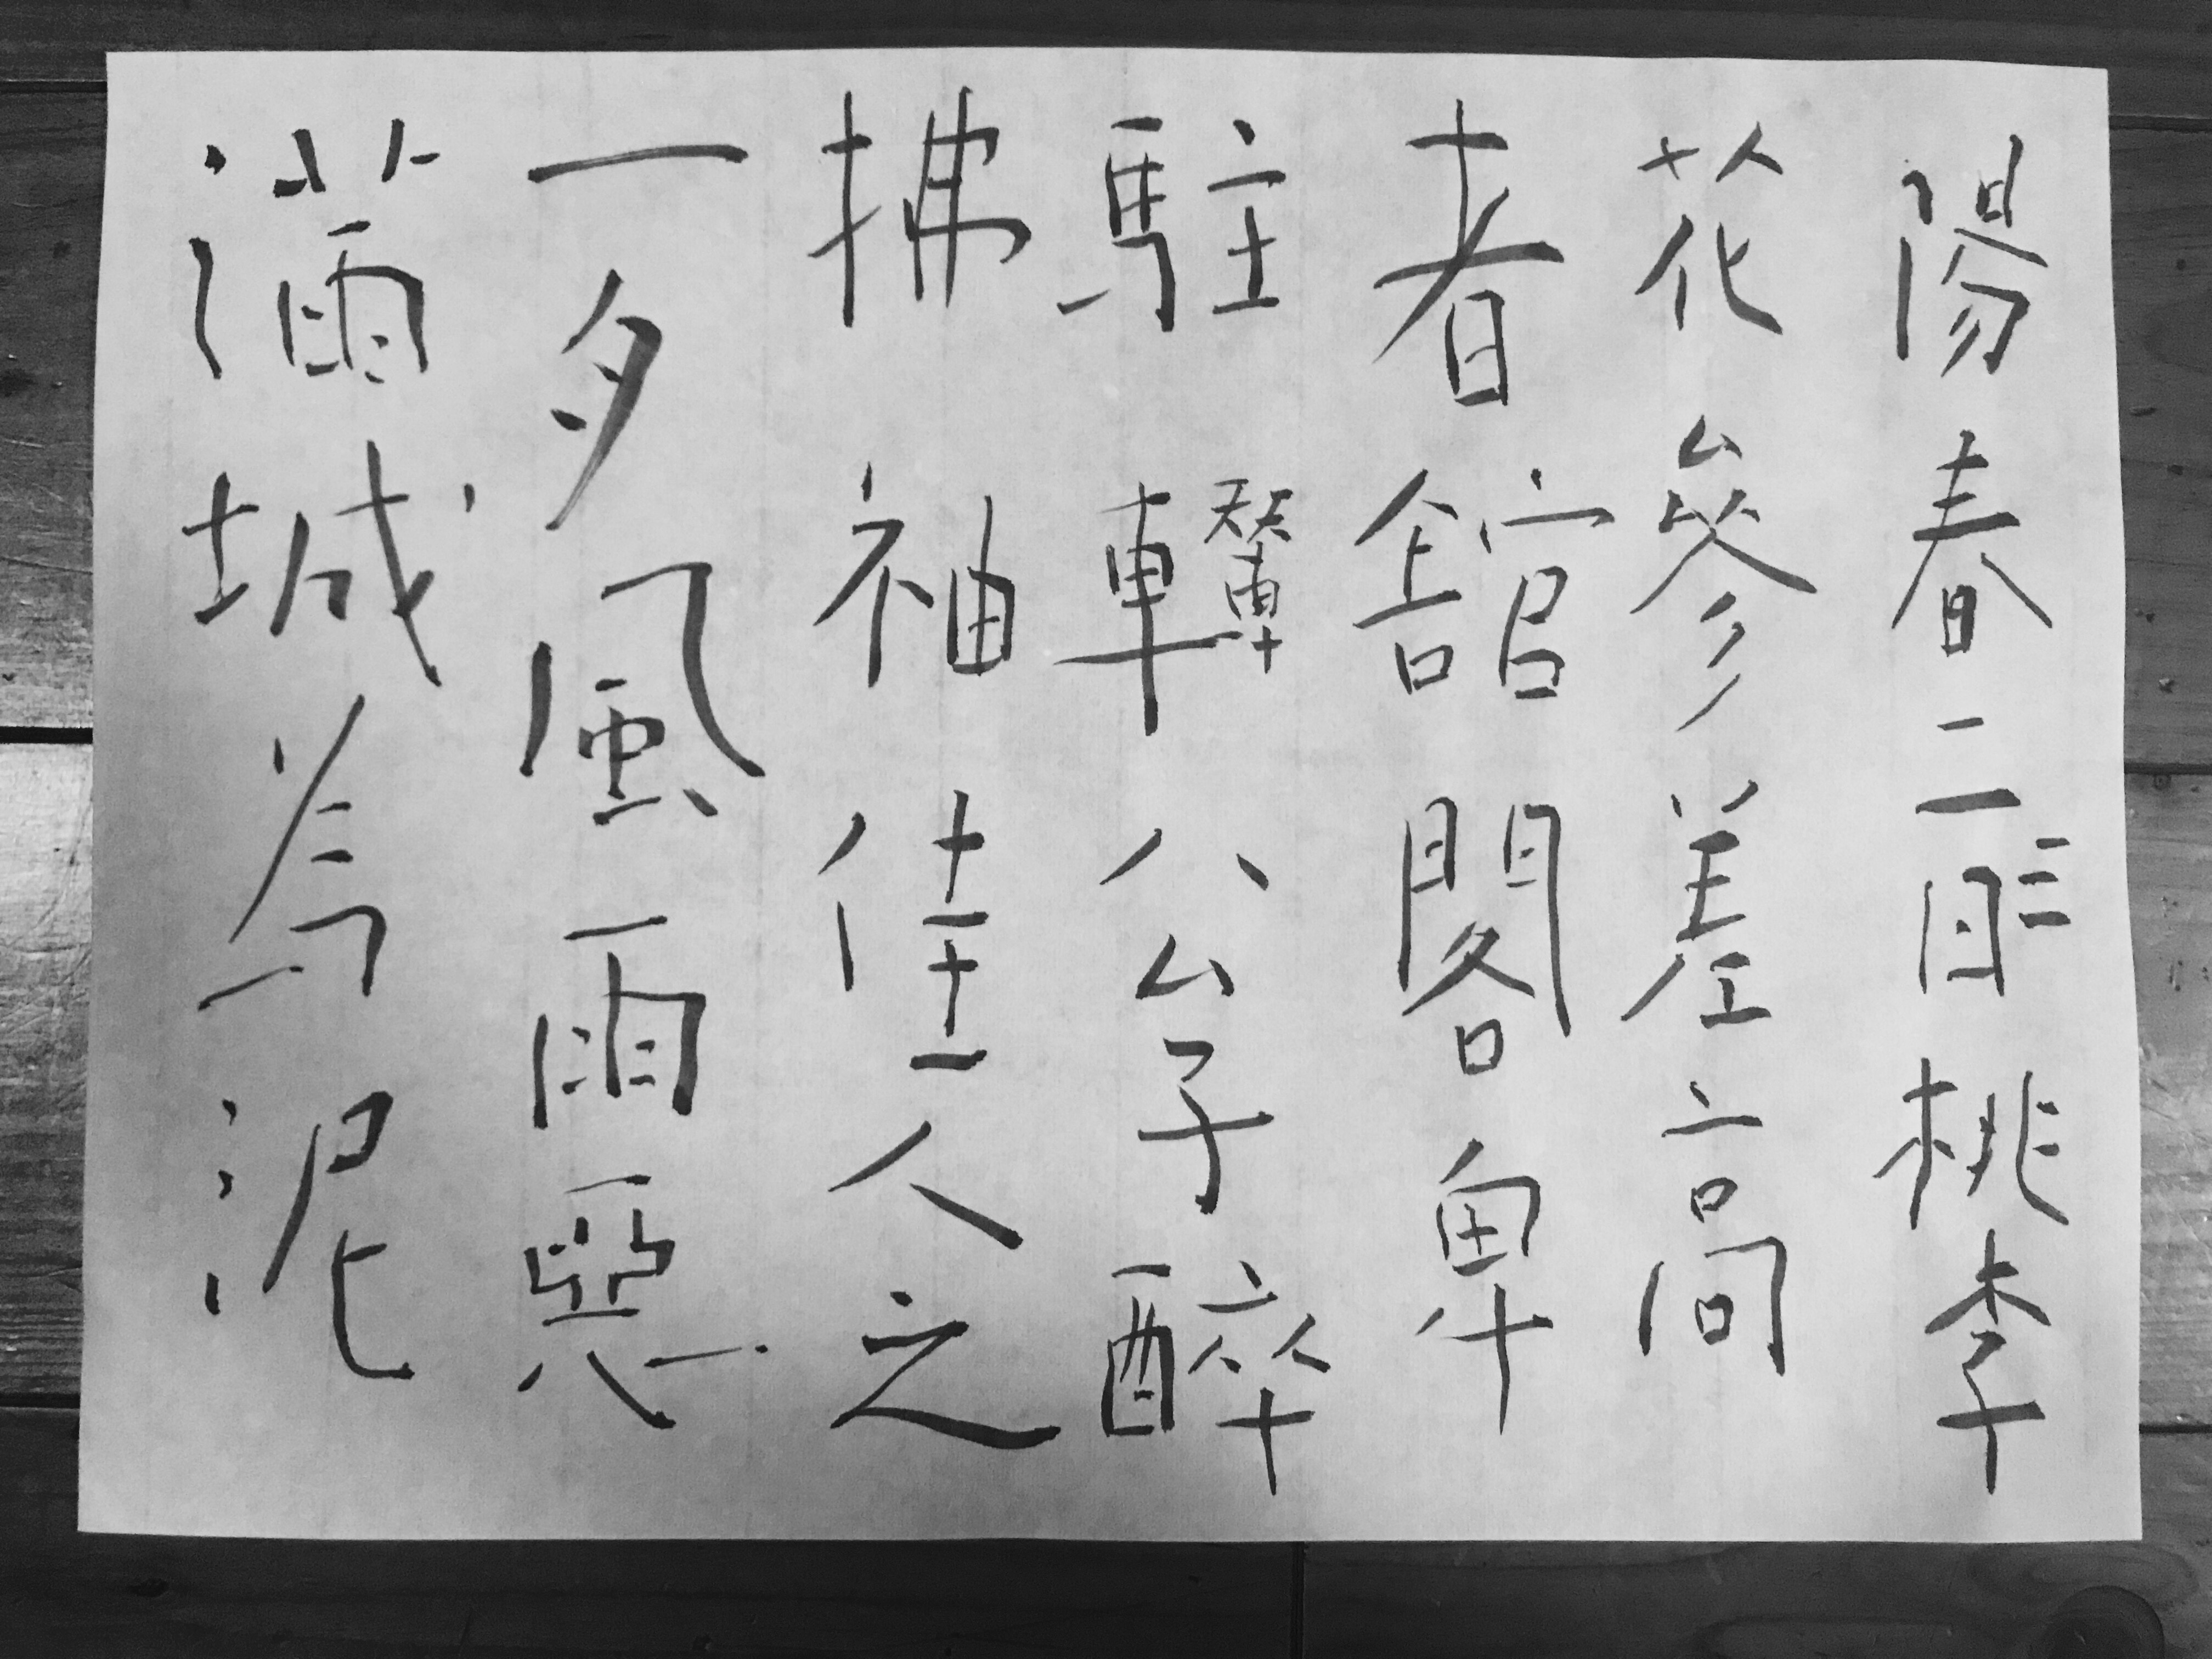 陽春二三月桃李
花參差高
者舘閣卑
駐輦公子醉
拂袖佳人之
一夕風雨惡
滿城為泥